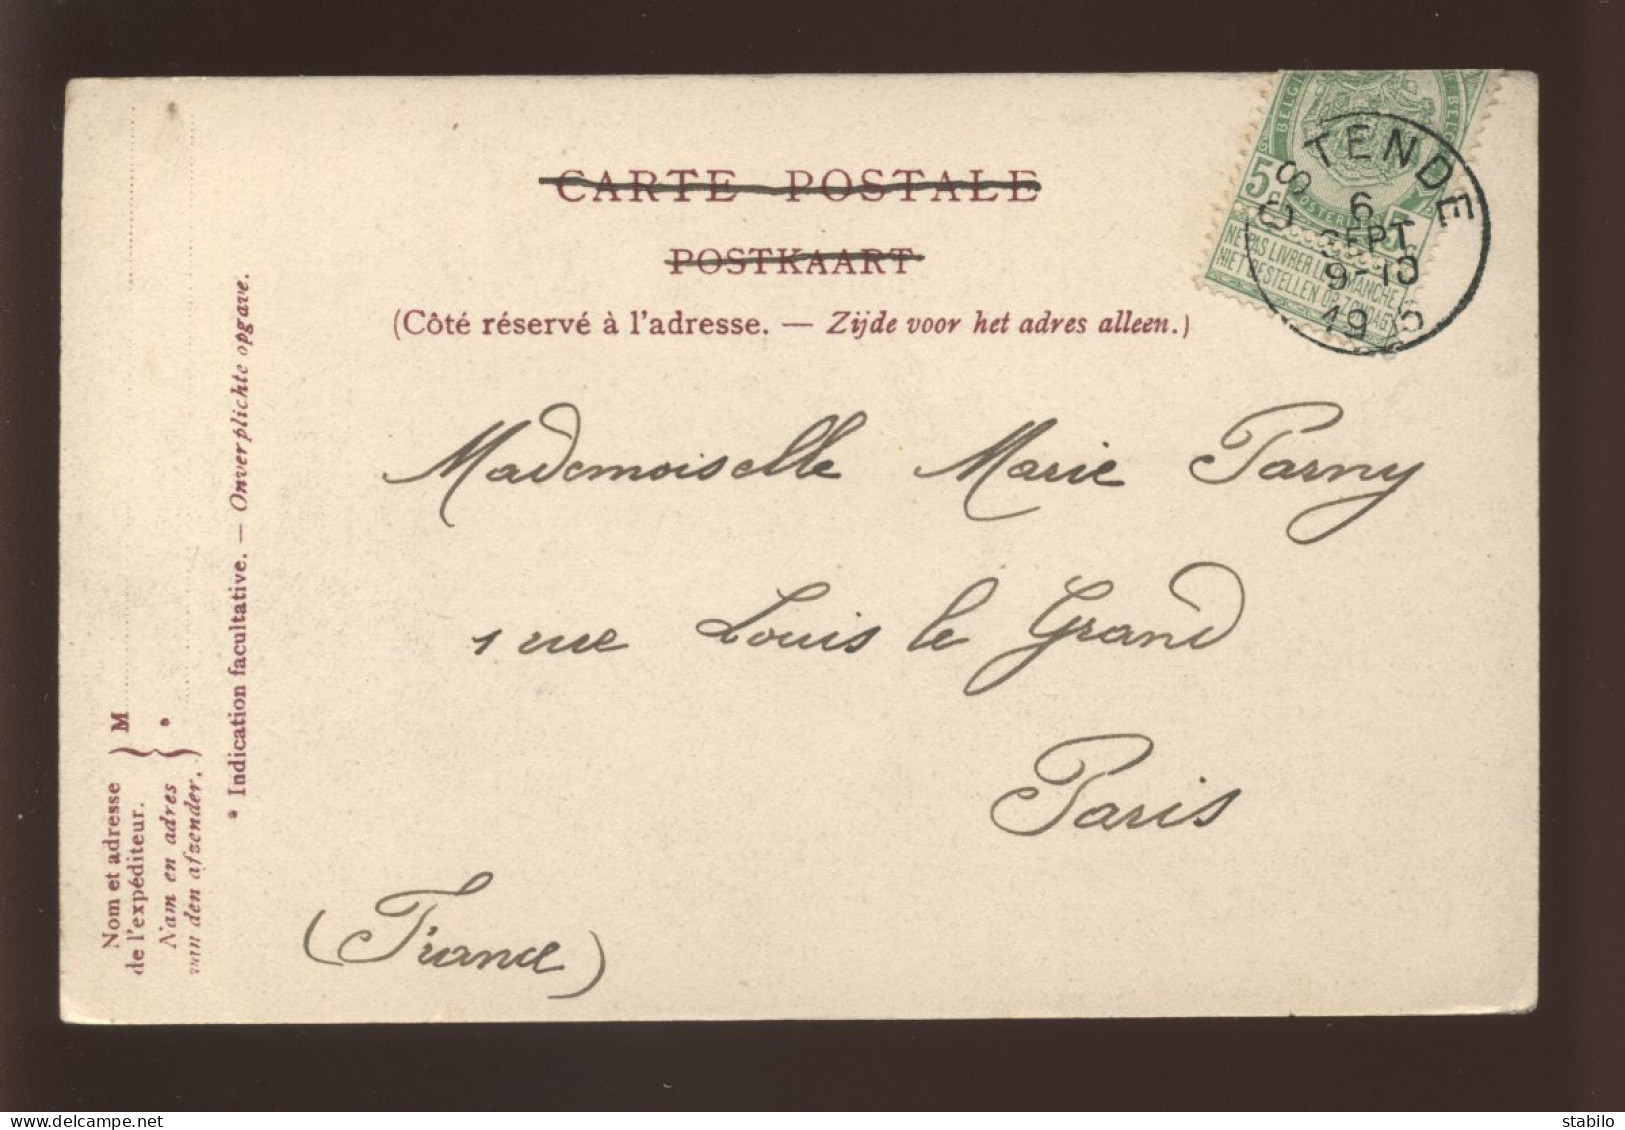 CARTE POSTALE
POSTKAART
(Côté réservé à l'adresse. — Zijde voor het adres alleen.)
BELGI
BELG
5c
5
OSTENDE
6
SEPT
9-10
19
NE PAS LIVRER LE DIMANCHE
NIET BESTELLEN OP ZONDAG
Mademoiselle Marie Parny
1 rue Louis le Grand
Paris
(France)
* Indication facultative. — Onverplichte opgave.
M
*
Nom et adresse
de l'expéditeur.
Nam en adres
van den afzender.
stabilo
www.delcampe.net